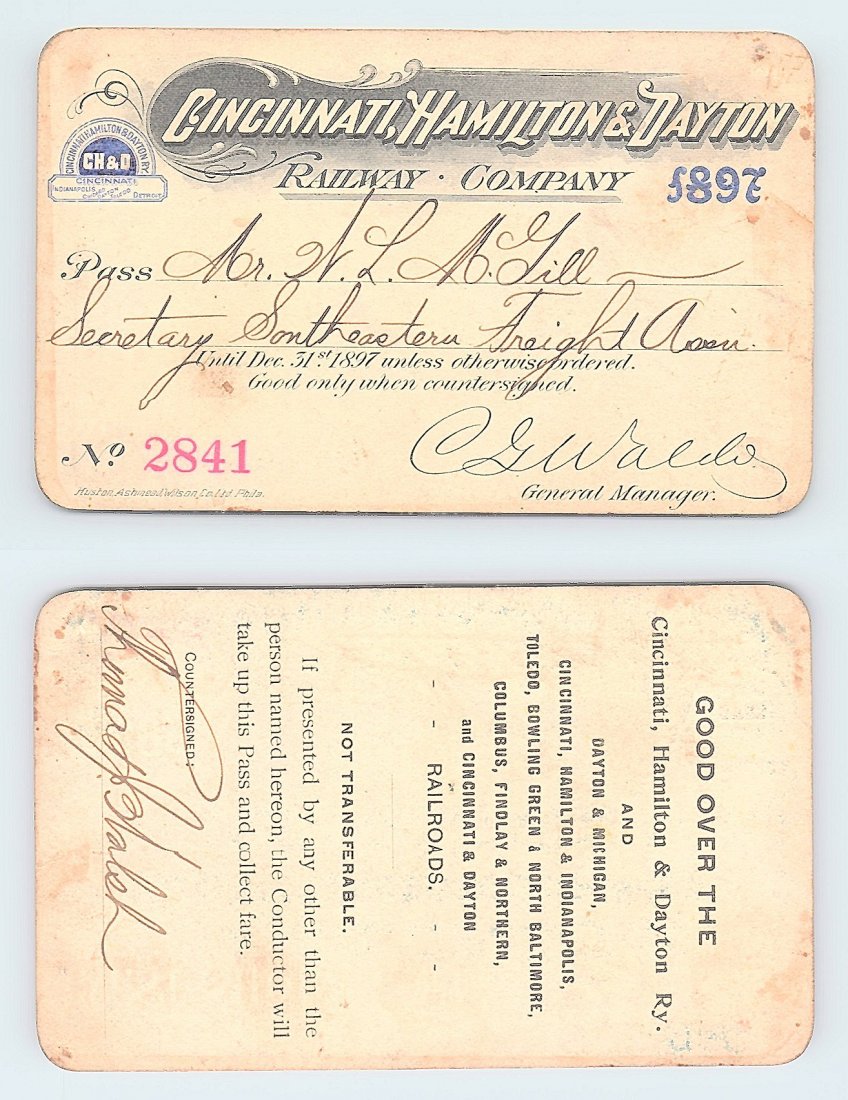 CINCINNATI, HAMILTON & DAYTON
RAILWAY · COMPANY
1897
CINCINNATI HAMILTON & DAYTON RY.
CH & D
CINCINNATI
INDIANAPOLIS
CHICAGO
DAYTON
TOLEDO
DETROIT
Pass Mr. W. L. McGill
Secretary Southeastern Freight Assn.
Until Dec. 31st 1897 unless otherwise ordered.
Good only when countersigned.
No. 2841
C G Waldo
General Manager.
Huston, Ashmead, Wilson, Co. Ltd. Phila.
GOOD OVER THE
Cincinnati, Hamilton & Dayton Ry.
AND
DAYTON & MICHIGAN,
CINCINNATI, HAMILTON & INDIANAPOLIS,
TOLEDO, BOWLING GREEN & NORTH BALTIMORE,
COLUMBUS, FINDLAY & NORTHERN,
and CINCINNATI & DAYTON
- - RAILROADS. - -
NOT TRANSFERABLE.
If presented by any other than the
person named hereon, the Conductor will
take up this Pass and collect fare.
COUNTERSIGNED:
Thomas J. Walsh